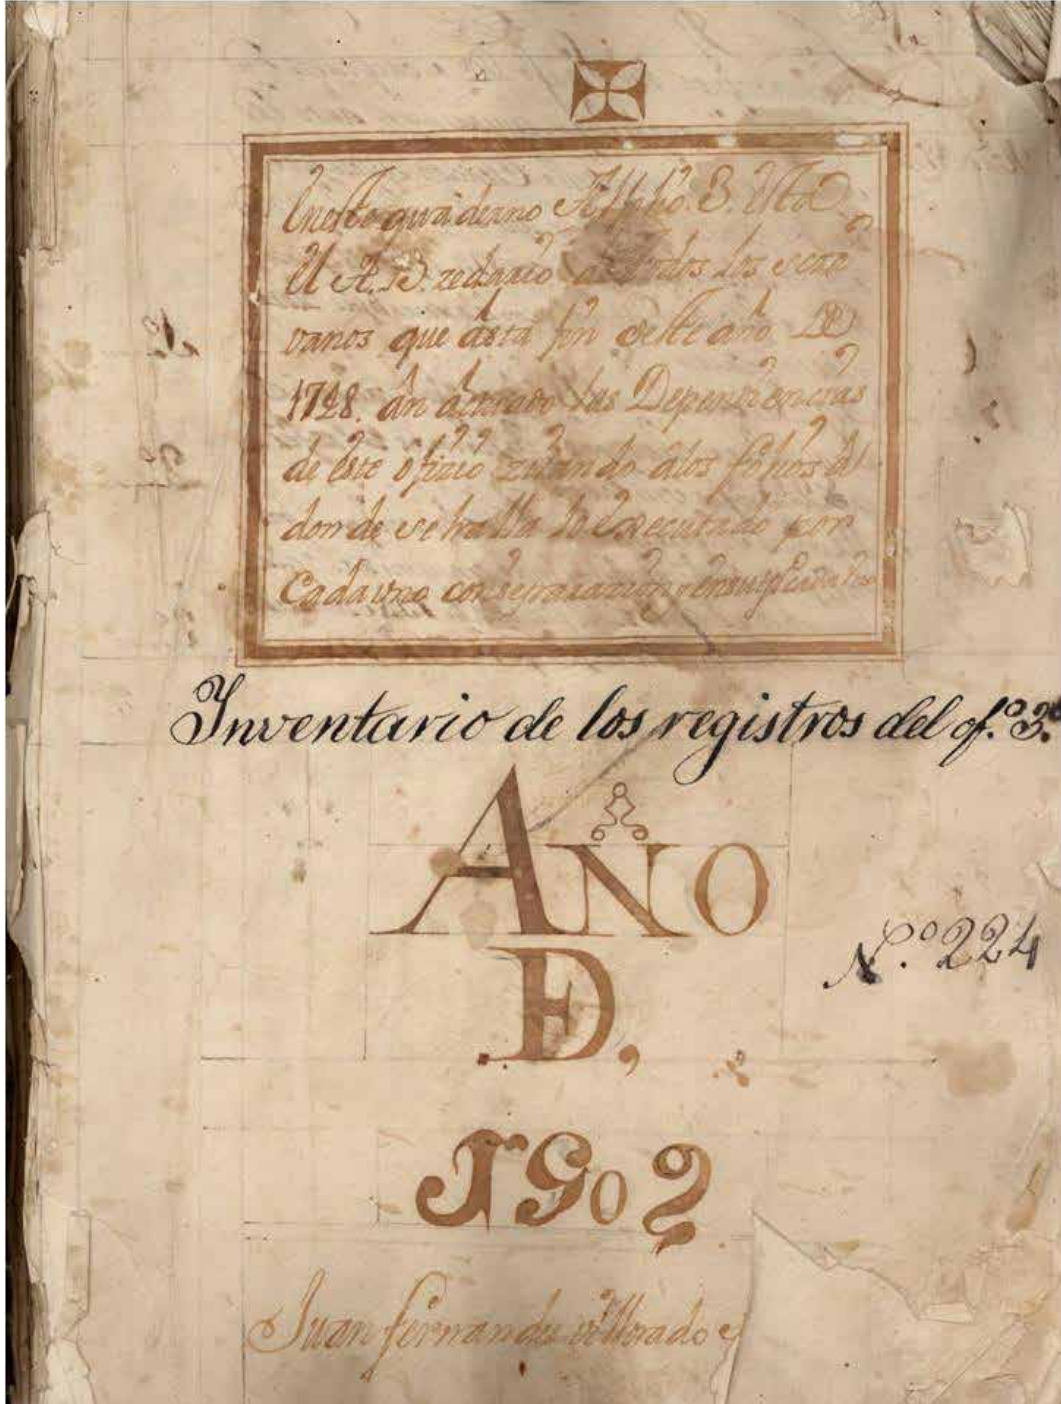 En este quaderno
El A.B. zedario a todos los escri
vanos que asta fin deste año DE
1728. an actuado las Dependencias
de este ofizio zitando a los folios a
donde se halla lo executado por
Cada uno con
Inventario de los registros del of.º 3.º
AÑO
DE,
Nº. 224
1902
Juan fernandes